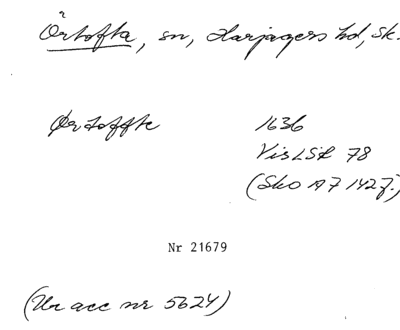 Örtofta, sn, Harjagers hd, Sk.
Ørtoffte 1636
VisLSk 78
(Sko A7 142 f.)
Nr 21679
(Ur acc nr 5624)